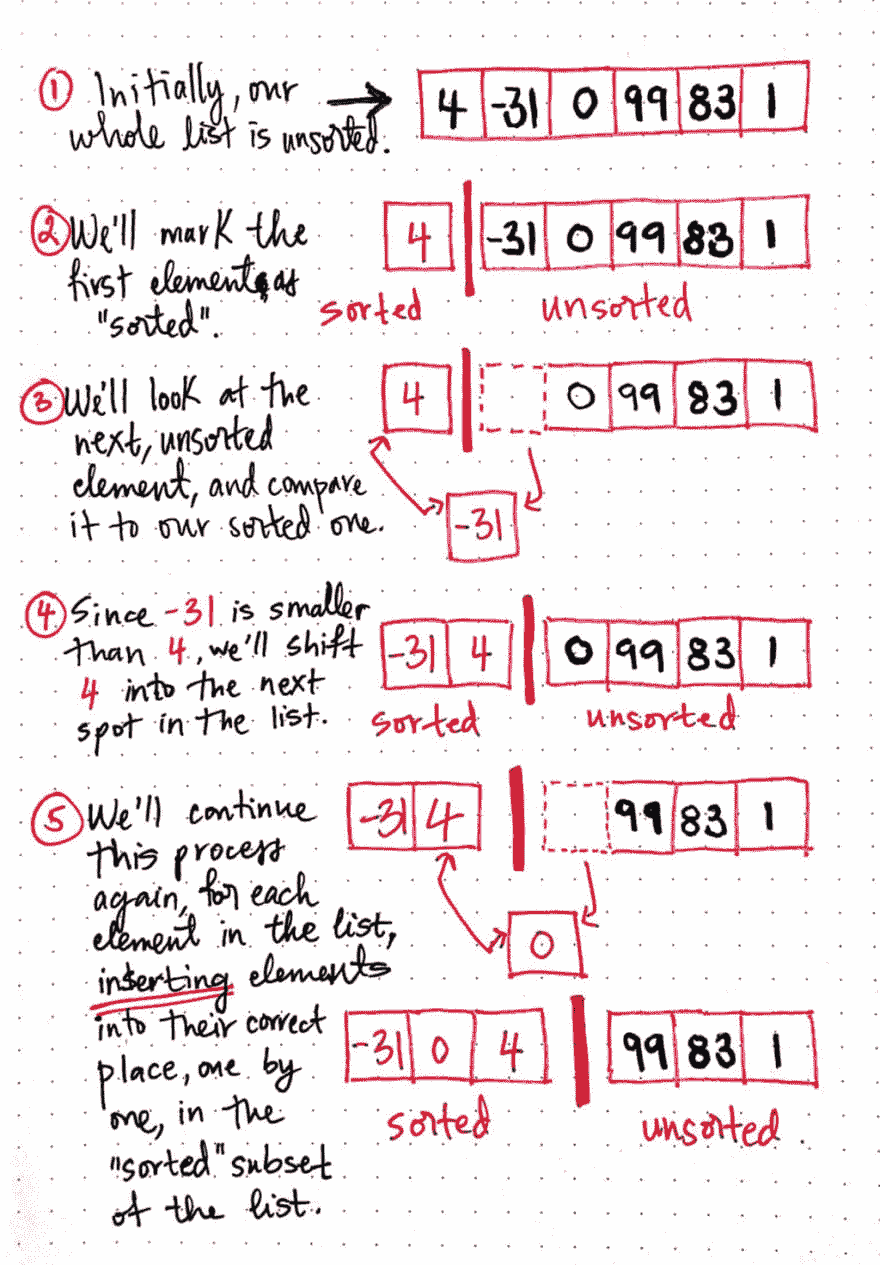 ① Initially, our
whole list is unsorted.
4 -31 0 99 83 1
② We'll mark the
first element as
"sorted".
4 -31 0 99 83 1
sorted unsorted
③ We'll look at the
next, unsorted
element, and compare
it to our sorted one.
4 0 99 83 1
-31
④ Since -31 is smaller
than 4, we'll shift
4 into the next
spot in the list.
-31 4 0 99 83 1
sorted unsorted
⑤ We'll continue
this process
again, for each
element in the list,
inserting elements
into their correct
place, one by
one, in the
"sorted" subset
of the list.
-31 4 99 83 1
0
-31 0 4 99 83 1
sorted unsorted